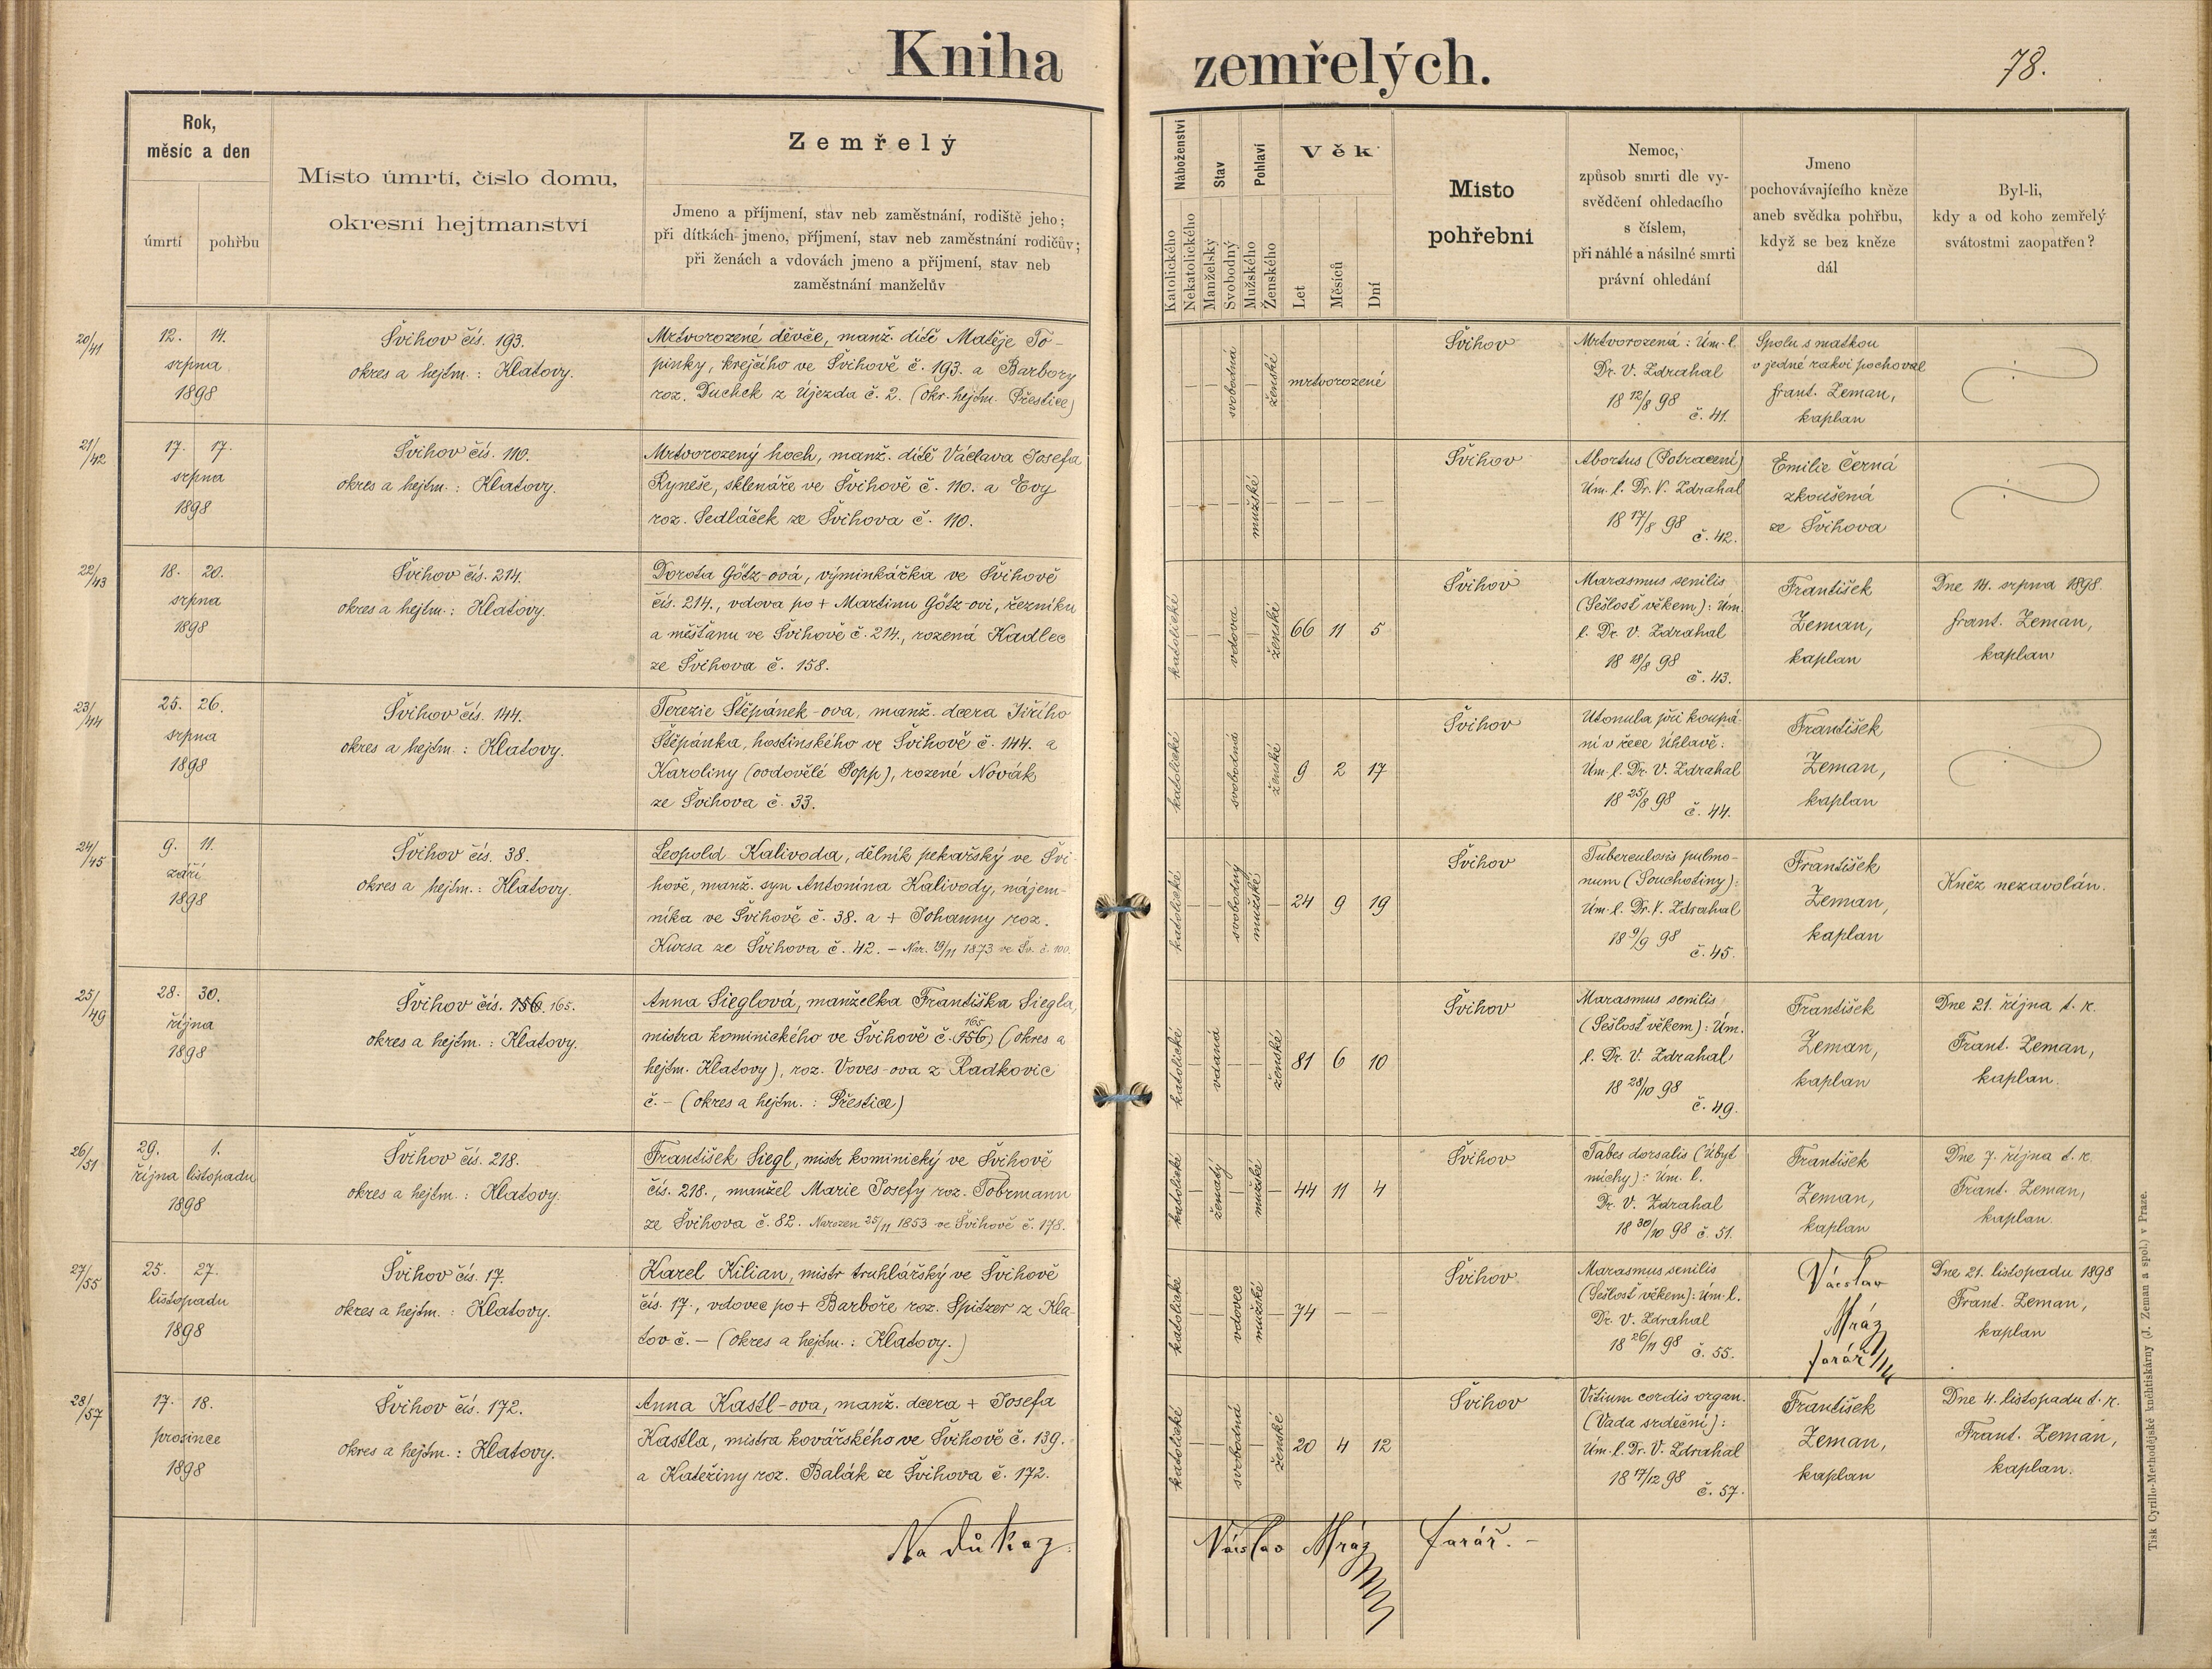 Kniha zemřelých.
78.
Rok,
měsíc a den
úmrtí
pohřbu
Místo úmrtí, číslo domu,
okresní hejtmanství
Zemřelý
Jmeno a příjmení, stav neb zaměstnání, rodiště jeho;
při dítkách jmeno, příjmení, stav neb zaměstnání rodičův;
při ženách a vdovách jmeno a příjmení, stav neb
zaměstnání manželův
Náboženství
Katolického
Nekatolického
Stav
Manželský
Svobodný
Pohlaví
Mužského
Ženského
Věk
Let
Měsíců
Dní
Místo
pohřební
Nemoc,
způsob smrti dle vy-
svědčení ohledacího
s číslem,
při náhlé a násilné smrti
právní ohledání
Jmeno
pochovávajícího kněze
aneb svědka pohřbu,
když se bez kněze
dál
Byl-li,
kdy a od koho zemřelý
svátostmi zaopatřen?
20/41
12. 14.
srpna
1898
Švihov čís. 193.
okres a hejtm.: Klatovy.
Mrtvorozené děvče, manž. dítě Matěje To-
pinky, krejčího ve Švihově č. 193. a Barbory
roz. Duchek z Újezda č. 2. (okr. hejtm. Přestice)
— — svobodná — ženské
mrtvorozené
Švihov
Mrtvorozená: Úm. l.
Dr. V. Zdrahal
18 12/8 98
č. 41.
Spolu s matkou
v jedné rakvi pochoval
frant. Zeman,
kaplan
21/42
17. 17.
srpna
1898
Švihov čís. 110.
okres a hejtm.: Klatovy.
Mrtvorozený hoch, manž. dítě Václava Josefa
Ryneše, sklenáře ve Švihově č. 110. a Evy
roz. Sedláček ze Švihova č. 110.
— — — mužské — — — —
Švihov
Abortus (Potracení)
Úm. l. Dr. V. Zdrahal
18 17/8 98
č. 42.
Emilie Černá
zkoušená
ze Švihova
22/43
18. 20.
srpna
1898
Švihov čís. 214.
okres a hejtm.: Klatovy.
Dorota Götz-ová, výminkářka ve Švihově
čís. 214., vdova po + Martinu Götz-ovi, řezníku
a měšťanu ve Švihově č. 214., rozená Kadlec
ze Švihova č. 158.
katolické — — vdova — ženské
66 11 5
Švihov
Marasmus senilis
(Sešlosť věkem): Úm.
l. Dr. V. Zdrahal
18 18/8 98
č. 43.
František
Zeman,
kaplan
Dne 14. srpna 1898.
frant. Zeman,
kaplan
23/44
25. 26.
srpna
1898
Švihov čís. 144.
okres a hejtm.: Klatovy.
Terezie Štěpánek-ova, manž. dcera Jiřího
Štěpánka, hostinského ve Švihově č. 144. a
Karoliny (ovdovělé Popp), rozené Novák
ze Švihova č. 33.
katolické — — svobodná — ženské
9 2 17
Švihov
Utonula při koupá-
ní v řece Úhlavě:
Úm. l. Dr. V. Zdrahal
18 25/8 98
č. 44.
František
Zeman,
kaplan
24/45
9. 11.
září
1898
Švihov čís. 38.
okres a hejtm.: Klatovy.
Leopold Kalivoda, dělník pekařský ve Švi-
hově, manž. syn Antonína Kalivody, nájem-
níka ve Švihově č. 38. a + Johanny roz.
Kursa ze Švihova č. 42. – Nar. 19/11 1873 ve Šv. č. 100.
katolické — — svobodný mužské —
24 9 19
Švihov
Tuberculosis pulmo-
num (Souchotiny):
Úm. l. Dr. V. Zdrahal
18 9/9 98
č. 45.
František
Zeman,
kaplan
Kněz nezavolán.
25/49
28. 30.
října
1898
Švihov čís. 156. 165.
okres a hejtm.: Klatovy.
Anna Sieglová, manželka Františka Siegla,
mistra kominického ve Švihově č. 156 165 (okres a
hejtm. Klatovy), roz. Voves-ova z Radkovic
č. – (okres a hejtm.: Přestice)
katolické — vdaná — — ženské
81 6 10
Švihov
Marasmus senilis
(Sešlosť věkem): Úm.
l. Dr. V. Zdrahal
18 28/10 98
č. 49.
František
Zeman,
kaplan
Dne 21. října t. r.
Frant. Zeman,
kaplan.
26/51
29. 1.
října listopadu
1898
Švihov čís. 218.
okres a hejtm.: Klatovy.
František Siegl, mistr kominický ve Švihově
čís. 218., manžel Marie Josefy roz. Tobrmann
ze Švihova č. 82. Narozen 25/11 1853 ve Švihově č. 178.
katolické — ženatý — mužské —
44 11 4
Švihov
Tabes dorsalis (Úbyt
míchy): Úm. l.
Dr. V. Zdrahal
18 30/10 98 č. 51.
František
Zeman,
kaplan
Dne 7. října t. r.
Frant. Zeman,
kaplan.
27/55
25. 27.
listopadu
1898
Švihov čís. 17.
okres a hejtm.: Klatovy.
Karel Kilian, mistr truhlářský ve Švihově
čís. 17., vdovec po + Barboře roz. Spitzer z Kla-
tov č. – (okres a hejtm.: Klatovy.)
katolické — — vdovec mužské —
74 — —
Švihov
Marasmus senilis
(Sešlosť věkem): Úm. l.
Dr. V. Zdrahal
18 26/11 98 č. 55.
Václav
Mráz
farář
Dne 21. listopadu 1898
Frant. Zeman,
kaplan
28/57
17. 18.
prosince
1898
Švihov čís. 172.
okres a hejtm.: Klatovy.
Anna Kastl-ova, manž. dcera + Josefa
Kastla, mistra kovářského ve Švihově č. 139.
a Kateřiny roz. Balák ze Švihova č. 172.
katolické — — svobodná — ženské
20 4 12
Švihov
Vitium cordis organ.
(Vada srdeční):
Úm. l. Dr. V. Zdrahal
18 17/12 98
č. 57.
František
Zeman,
kaplan
Dne 4. listopadu t. r.
Frant. Zeman,
kaplan.
Na důkaz. Václav Mráz farář. –
Tisk Cyrillo-Methodějské kněhtiskárny (J. Zeman a spol.) v Praze.